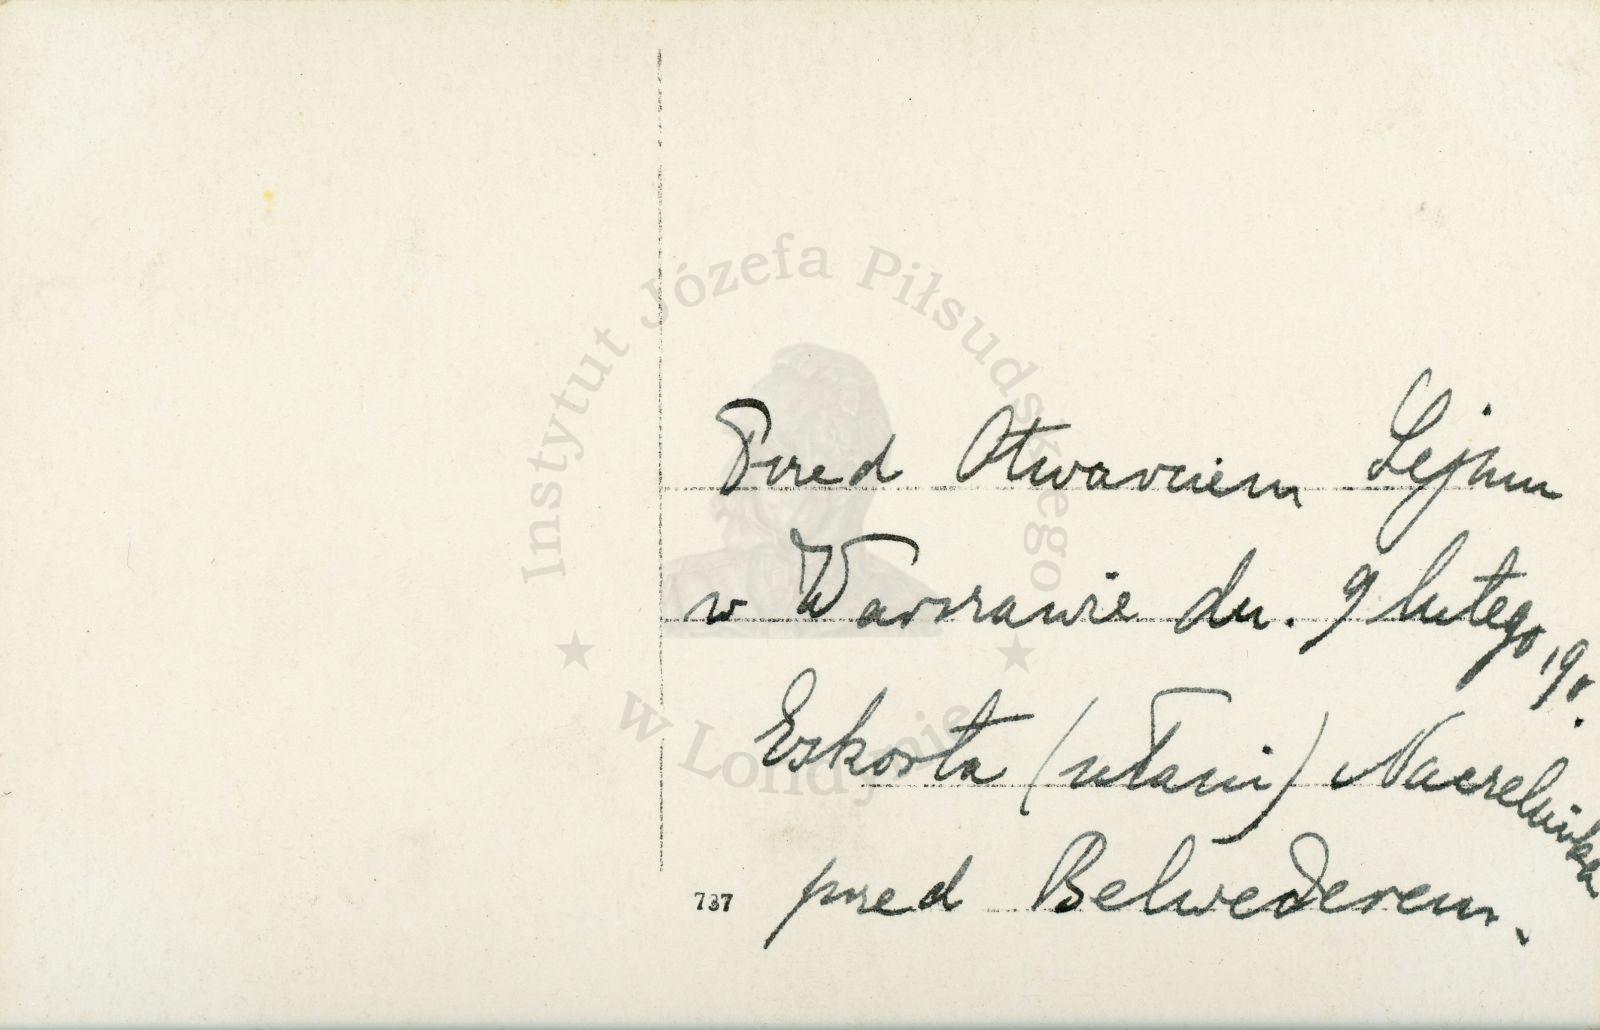 Instytut Józefa Piłsudskiego
w Londynie
Przed Otwarciem Sejmu
w Warszawie dn. 9 lutego 19 r.
Eskorta (ułani) Naczelnika
przed Belwederem.
737